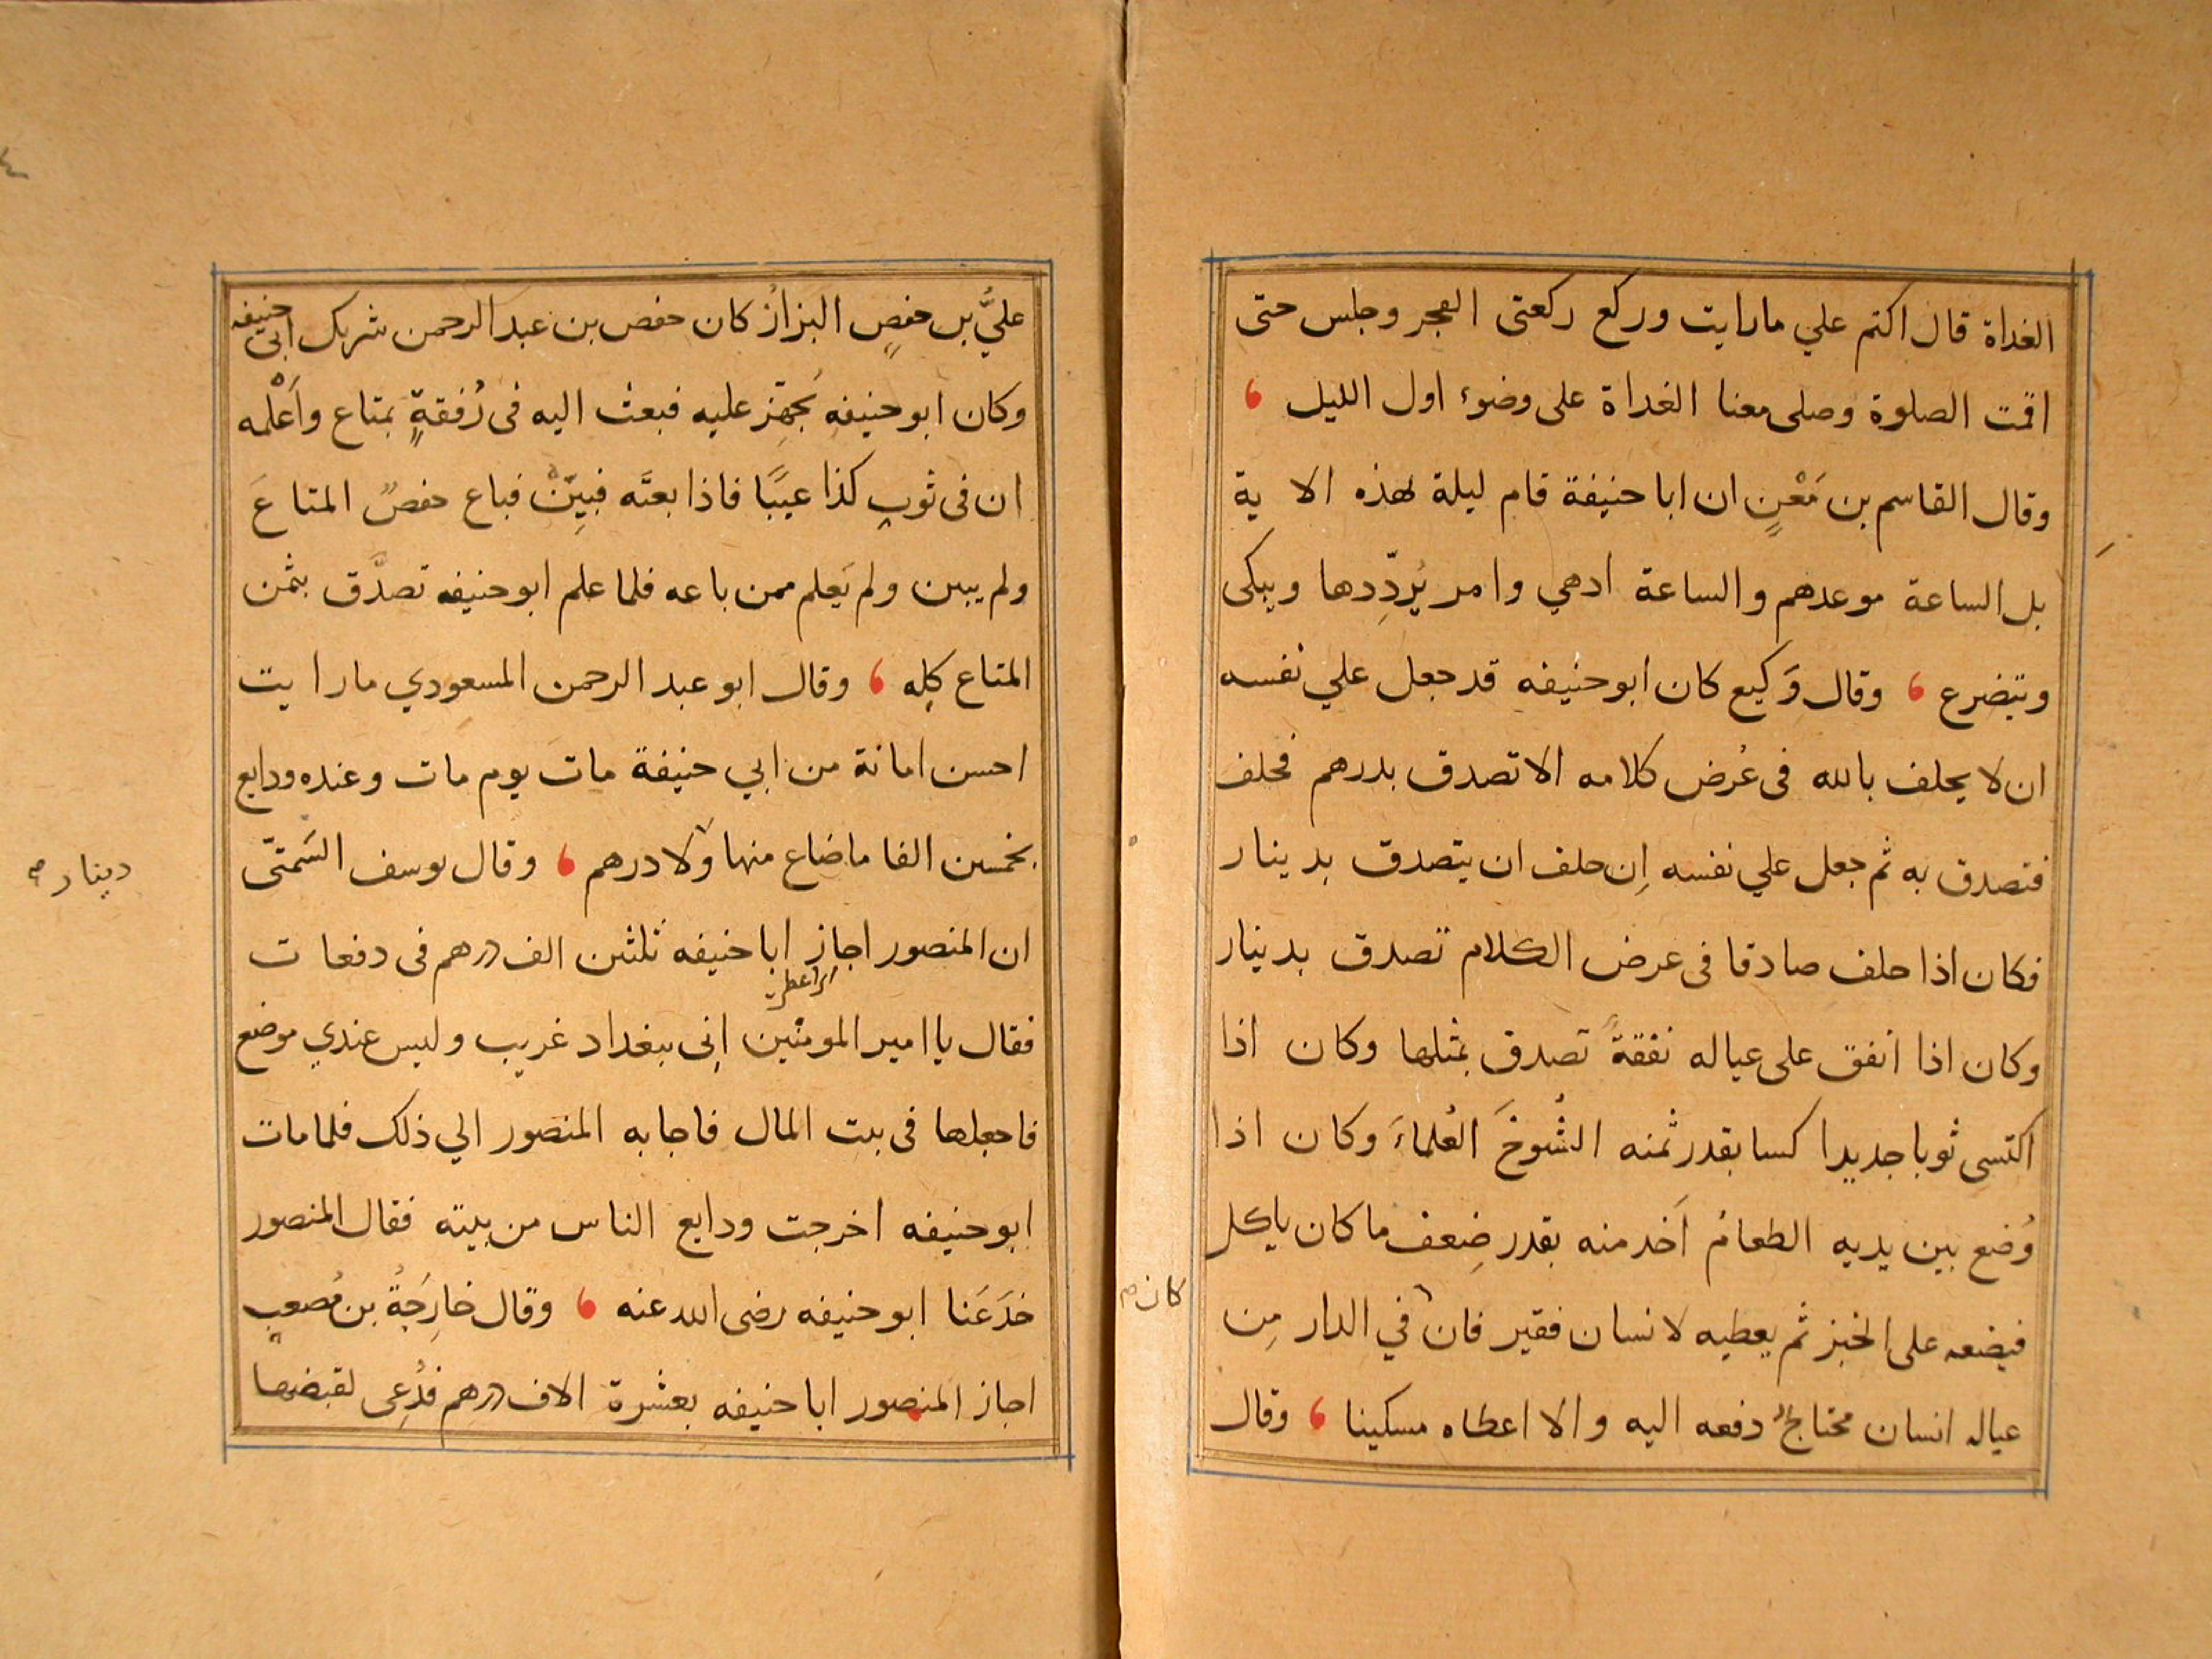 الغداة قال اكتم علي ما رايت وركع ركعتى الفجر وجلس حتى
اقمت الصلوة وصلى معنا الغداة على وضوء اول الليل
وقال القاسم بن مَعْنٍ ان ابا حنيفة قام ليلة لهذه الاية
بل الساعة موعدهم والساعة ادهي وامر يُردِّدها ويبكى
ويتضرع وقال وَكيع كان ابو حنيفه قد جعل علي نفسه
ان لا يحلف بالله فى عُرض كلامه الا تصدق بدرهم فحلف
فتصدق به ثم جعل علي نفسه اِن حلف ان يتصدق بدينار
فكان اذا حلف صادقا فى عرض الكلام تصدق بدينار
وكان اذا انفق على عياله نفقةً تصدق بمثلها وكان اذا
اكتسى ثوبا جديدا كسا بقدر ثمنه الشُّوخَ العُلماءَ وكان اذا
وُضع بين يديه الطعامُ اَخذ منه بقدر ضِعف ما كان ياكل
فيضعه على الخبز ثم يعطيه لانسان فقير فان في الدار مِن
كان
عياله انسان محتاجٌ دفعه اليه والا اعطاه مسكينا وقال
عليُّ بن حفصٍ البزازُ كان حفص بن عبد الرحمن شريك ابى حنيفه
وكان ابو حنيفه يُجهِّز عليه فبعث اليه فى رُفقةٍ بمتاع واَعْلمه
ان فى ثوبِ كذا عيبًا فاذا بعتَه فبيِّنْ فباع حفصٌ المتاعَ
ولم يبين ولم يَعلم ممن باعه فلما علم ابو حنيفه تصدَّق بثمن
المتاع كلِه وقال ابو عبد الرحمن المسعودي ما رايت
احسن امانة من ابي حنيفة مات يوم مات وعنده ودايع
بخمسين الفا ما ضاع منها ولا درهم وقال يوسف السَمتىّ
دينار
ان المنصور اجاز ابا حنيفه ثلثين الف درهم فى دفعات
فقال يا امير المومنين اِنى ببغداد غريب وليس عندي موضع
فاجعلها فى بيت المال فاجابه المنصور الي ذلك فلما مات
ابو حنيفه اخرجت ودايع الناس من بيته فقال المنصور
خدَعَنا ابو حنيفه رضى الله عنه وقال خارِجَةُ بن مُصعبٍ
اجاز المنصور ابا حنيفه بعشرة الاف درهم فدُعِى لقبضها